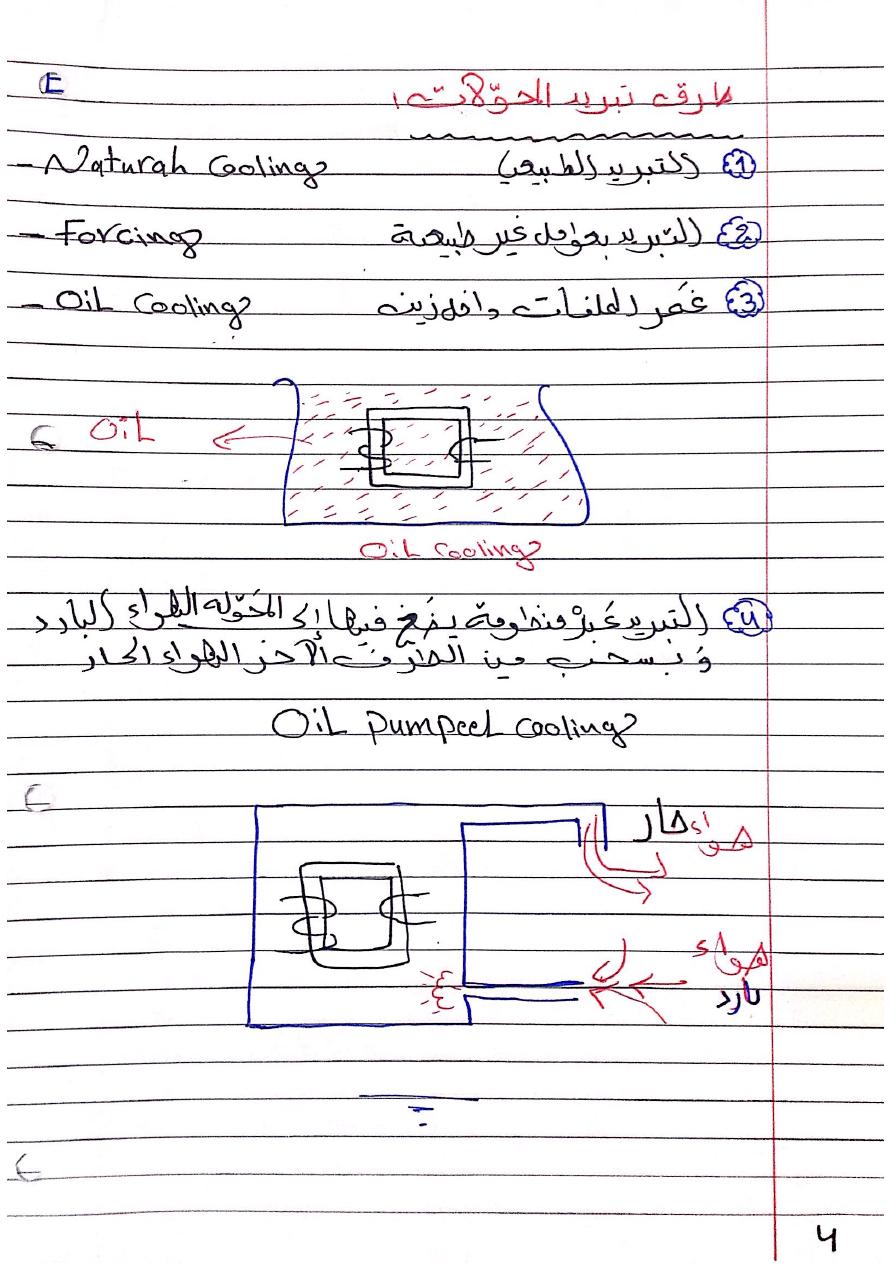 طرق تبريد المحوّلات:
① التبريد الطبيعي - Natural Cooling
② التبريد بعوامل غير طبيعية - Forcing
③ غَمر الملفات داخل زيت - Oil Cooling
Oil
Oil Cooling
④ التبريد عَبرْ منظومة يضَخ فيها إلى المحَوّله الهواء البارد
وَ نسحب من الطرَف الآخر الهواء الحار
Oil Pumped Cooling
هواء حار
هواء
بارد
4